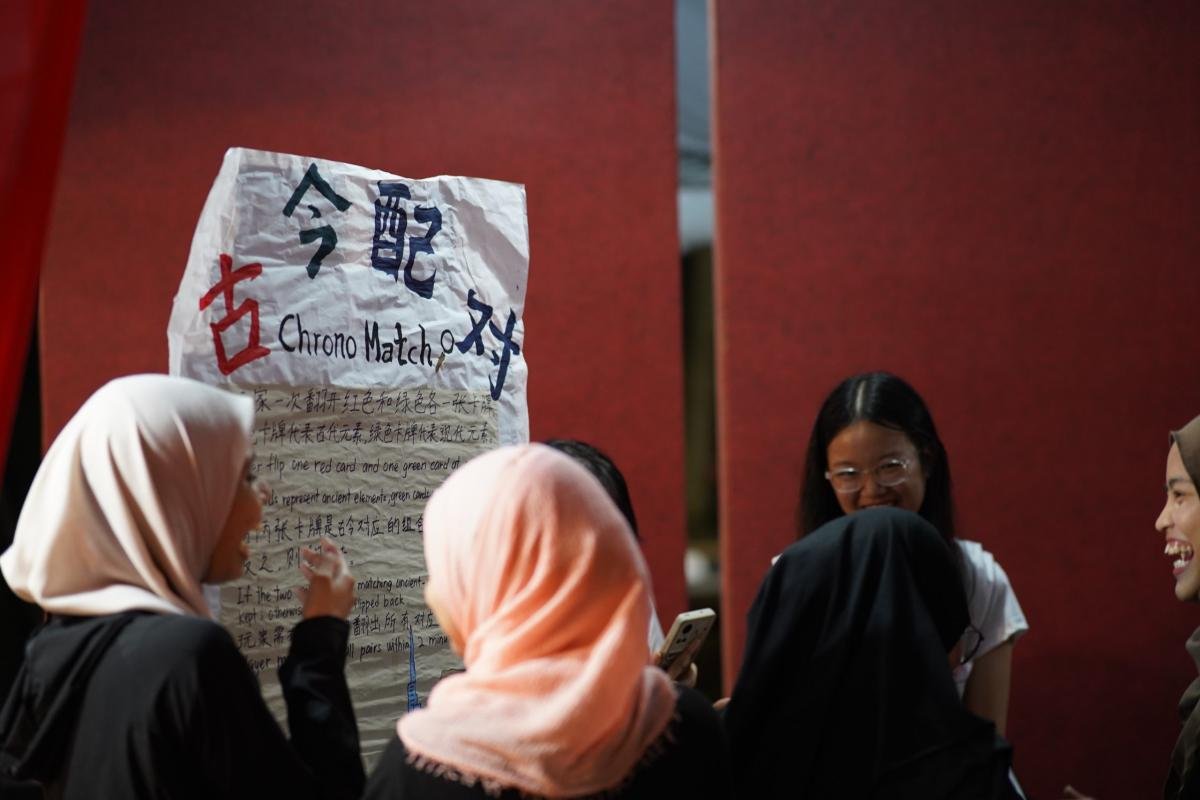 古今配对
Chrono Match
家一次翻开红色和绿色各一张卡牌
卡牌代表古代元素,绿色卡牌代表现代元素
flip one red card and one green card at
represent ancient elements, green cards
两张卡牌是古今对应的组合
反之,则
If the two matching ancient-
kept; otherwise flipped back
玩家需 翻出所有对应
pairs within 2 minu